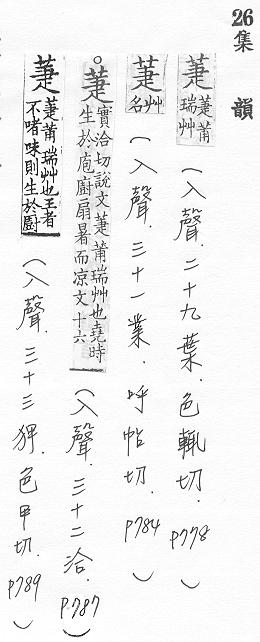 26集 韻
萐萐莆瑞艸(入聲.二十九葉.色輒切.P778)
萐艸名(入聲.三十一業.呼帖切.P784)
○萐實洽切說文萐莆瑞艸也堯時生於庖廚扇暑而凉文十六(入聲.三十二洽.P.787)
萐萐莆瑞艸也王者不嗜味則生於廚(入聲.三十三狎.色甲切.P789)